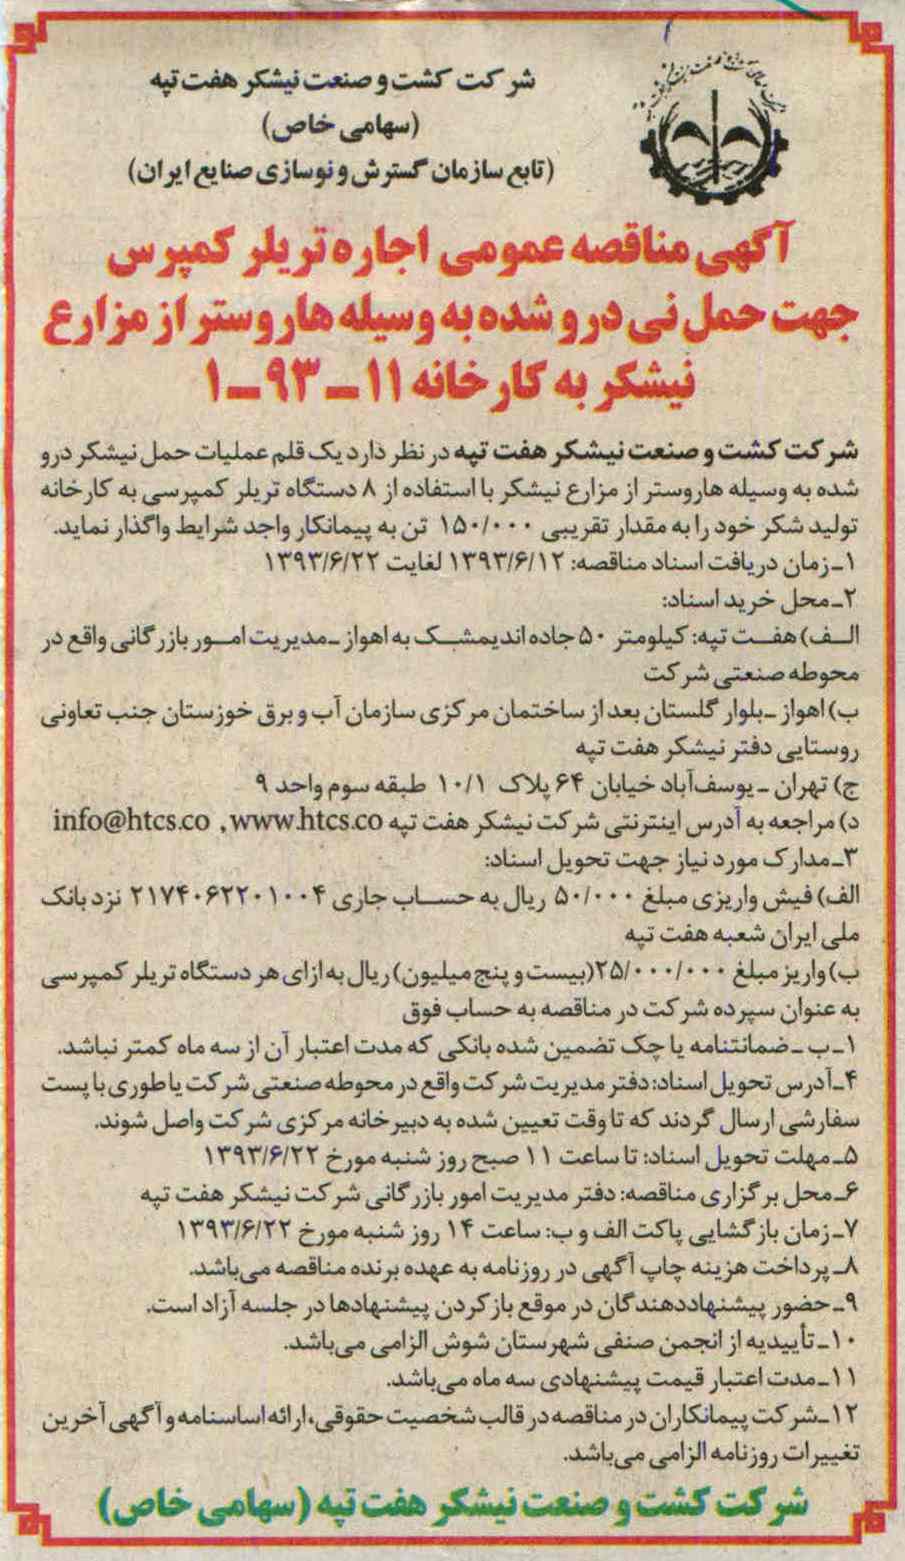 شرکت کشت و صنعت نیشکر هفت تپه
(سهامی خاص)
(تابع سازمان گسترش و نوسازی صنایع ایران)
آگهی مناقصه عمومی اجاره تریلر کمپرس
جهت حمل نی درو شده به وسیله هاروستر از مزارع
نیشکر به کارخانه ۱۱ـ۹۳ـ۱
شرکت کشت و صنعت نیشکر هفت تپه در نظر دارد یک قلم عملیات حمل نیشکر درو
شده به وسیله هاروستر از مزارع نیشکر با استفاده از ۸ دستگاه تریلر کمپرسی به کارخانه
تولید شکر خود را به مقدار تقریبی ۱۵۰/۰۰۰ تن به پیمانکار واجد شرایط واگذار نماید.
۱ـ زمان دریافت اسناد مناقصه: ۱۳۹۳/۶/۱۲ لغایت ۱۳۹۳/۶/۲۲
۲ـ محل خرید اسناد:
الـف) هفـت تپه: کیلومتر ۵۰ جاده اندیمشـک به اهواز ـ مدیریت امـور بازرگانی واقع در
محوطه صنعتی شرکت
ب) اهواز ـ بلوار گلستان بعد از ساختمان مرکزی سازمان آب و برق خوزستان جنب تعاونی
روستایی دفتر نیشکر هفت تپه
ج) تهران ـ یوسف‌آباد خیابان ۶۴ پلاک ۱۰/۱ طبقه سوم واحد ۹
د) مراجعه به آدرس اینترنتی شرکت نیشکر هفت تپه info@htcs.co , www.htcs.co
۳ـ مدارک مورد نیاز جهت تحویل اسناد:
الف) فیش واریزی مبلغ ۵۰/۰۰۰ ریال به حسـاب جاری ۲۱۷۴۰۶۲۲۰۱۰۰۴ نزد بانک
ملی ایران شعبه هفت تپه
ب) واریز مبلغ ۲۵/۰۰۰/۰۰۰(بیست و پنج میلیون) ریال به ازای هر دستگاه تریلر کمپرسی
به عنوان سپرده شرکت در مناقصه به حساب فوق
۱ـ ب ـ ضمانتنامه یا چک تضمین شده بانکی که مدت اعتبار آن از سه ماه کمتر نباشد.
۴ـ آدرس تحویل اسناد: دفتر مدیریت شرکت واقع در محوطه صنعتی شرکت یا طوری با پست
سفارشی ارسال گردند که تا وقت تعیین شده به دبیرخانه مرکزی شرکت واصل شوند.
۵ـ مهلت تحویل اسناد: تا ساعت ۱۱ صبح روز شنبه مورخ ۱۳۹۳/۶/۲۲
۶ـ محل برگزاری مناقصه: دفتر مدیریت امور بازرگانی شرکت نیشکر هفت تپه
۷ـ زمان بازگشایی پاکت الف و ب: ساعت ۱۴ روز شنبه مورخ ۱۳۹۳/۶/۲۲
۸ـ پرداخت هزینه چاپ آگهی در روزنامه به عهده برنده مناقصه می‌باشد.
۹ـ حضور پیشنهاددهندگان در موقع بازکردن پیشنهادها در جلسه آزاد است.
۱۰ـ تأییدیه از انجمن صنفی شهرستان شوش الزامی می‌باشد.
۱۱ـ مدت اعتبار قیمت پیشنهادی سه ماه می‌باشد.
۱۲ـ شرکت پیمانکاران در مناقصه در قالب شخصیت حقوقی، ارائه اساسنامه و آگهی آخرین
تغییرات روزنامه الزامی می‌باشد.
شرکت کشت و صنعت نیشکر هفت تپه (سهامی خاص)